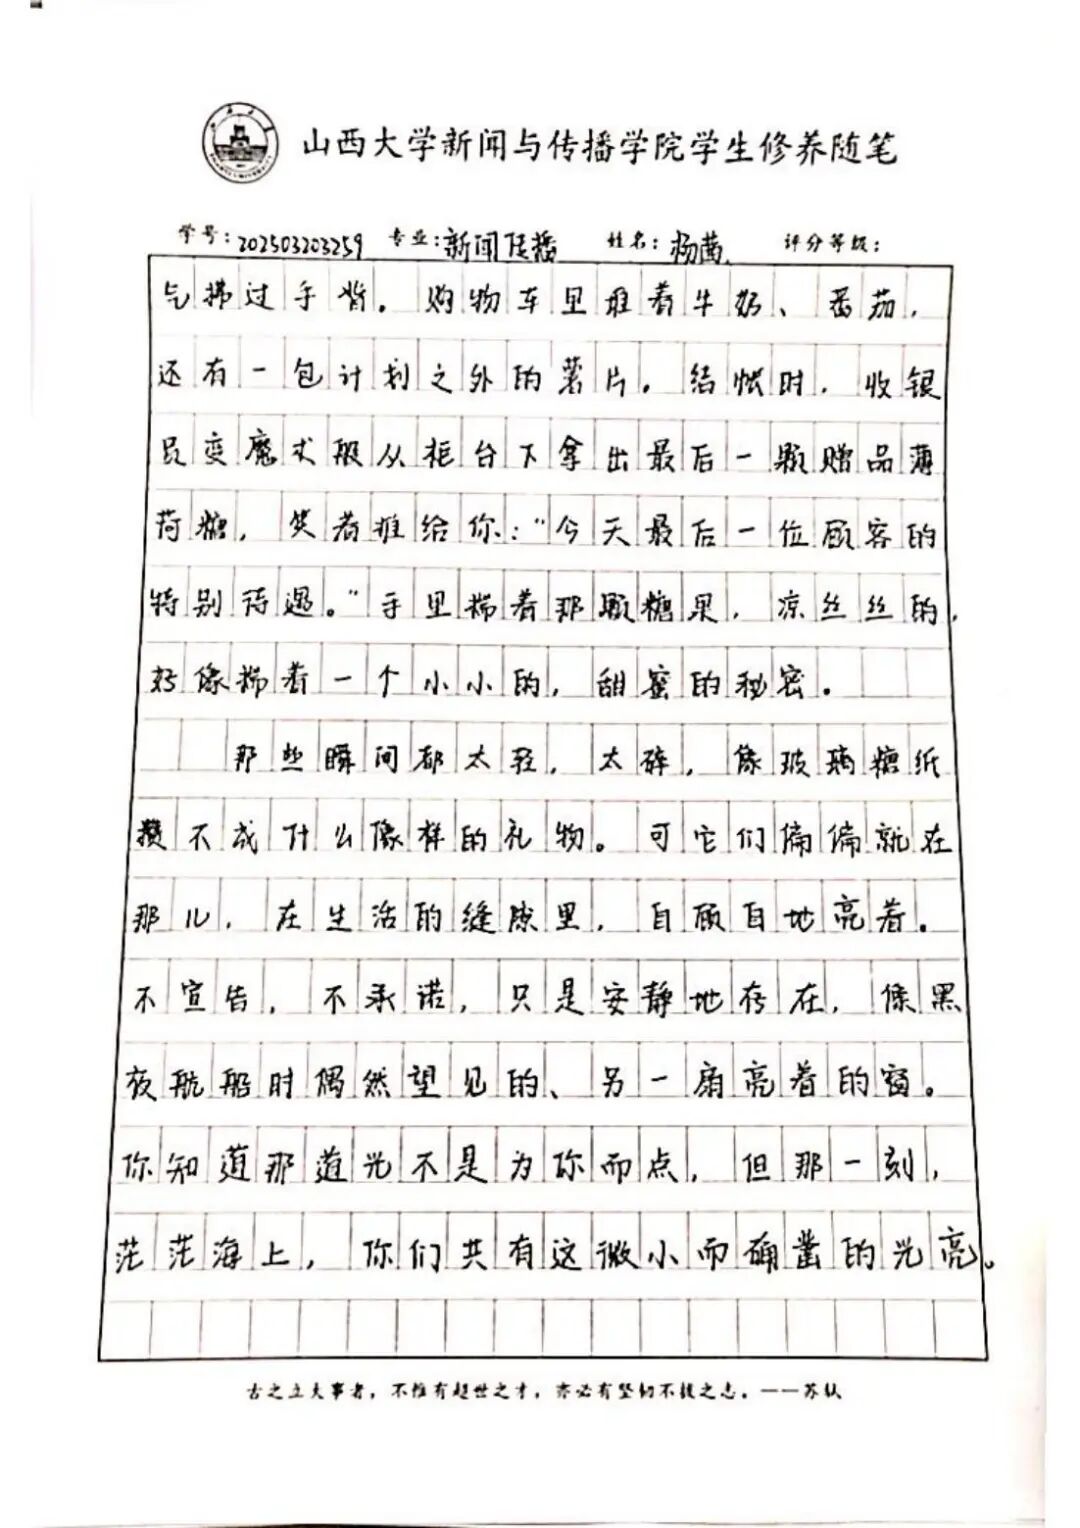 山西大学新闻与传播学院学生修养随笔
学号:202503203259 专业:新闻传播 姓名:杨茜 评分等级:
气拂过手背。购物车里堆着牛奶、番茄,
还有一包计划之外的薯片。结帐时,收银
员变魔术般从柜台下拿出最后一颗赠品薄
荷糖,笑着推给你:“今天最后一位顾客的
特别待遇。”手里揣着那颗糖果,凉丝丝的,
好像揣着一个小小的,甜蜜的秘密。
那些瞬间都太轻,太碎,像玻璃糖纸
攒不成什么像样的礼物。可它们偏偏就在
那儿,在生活的缝隙里,自顾自地亮着。
不宣告,不承诺,只是安静地存在,像黑
夜航船时偶然望见的、另一扇亮着的窗。
你知道那道光不是为你而点,但那一刻,
茫茫海上,你们共有这微小而确凿的光亮。
古之立大事者,不惟有超世之才,亦必有坚韧不拔之志。——苏轼